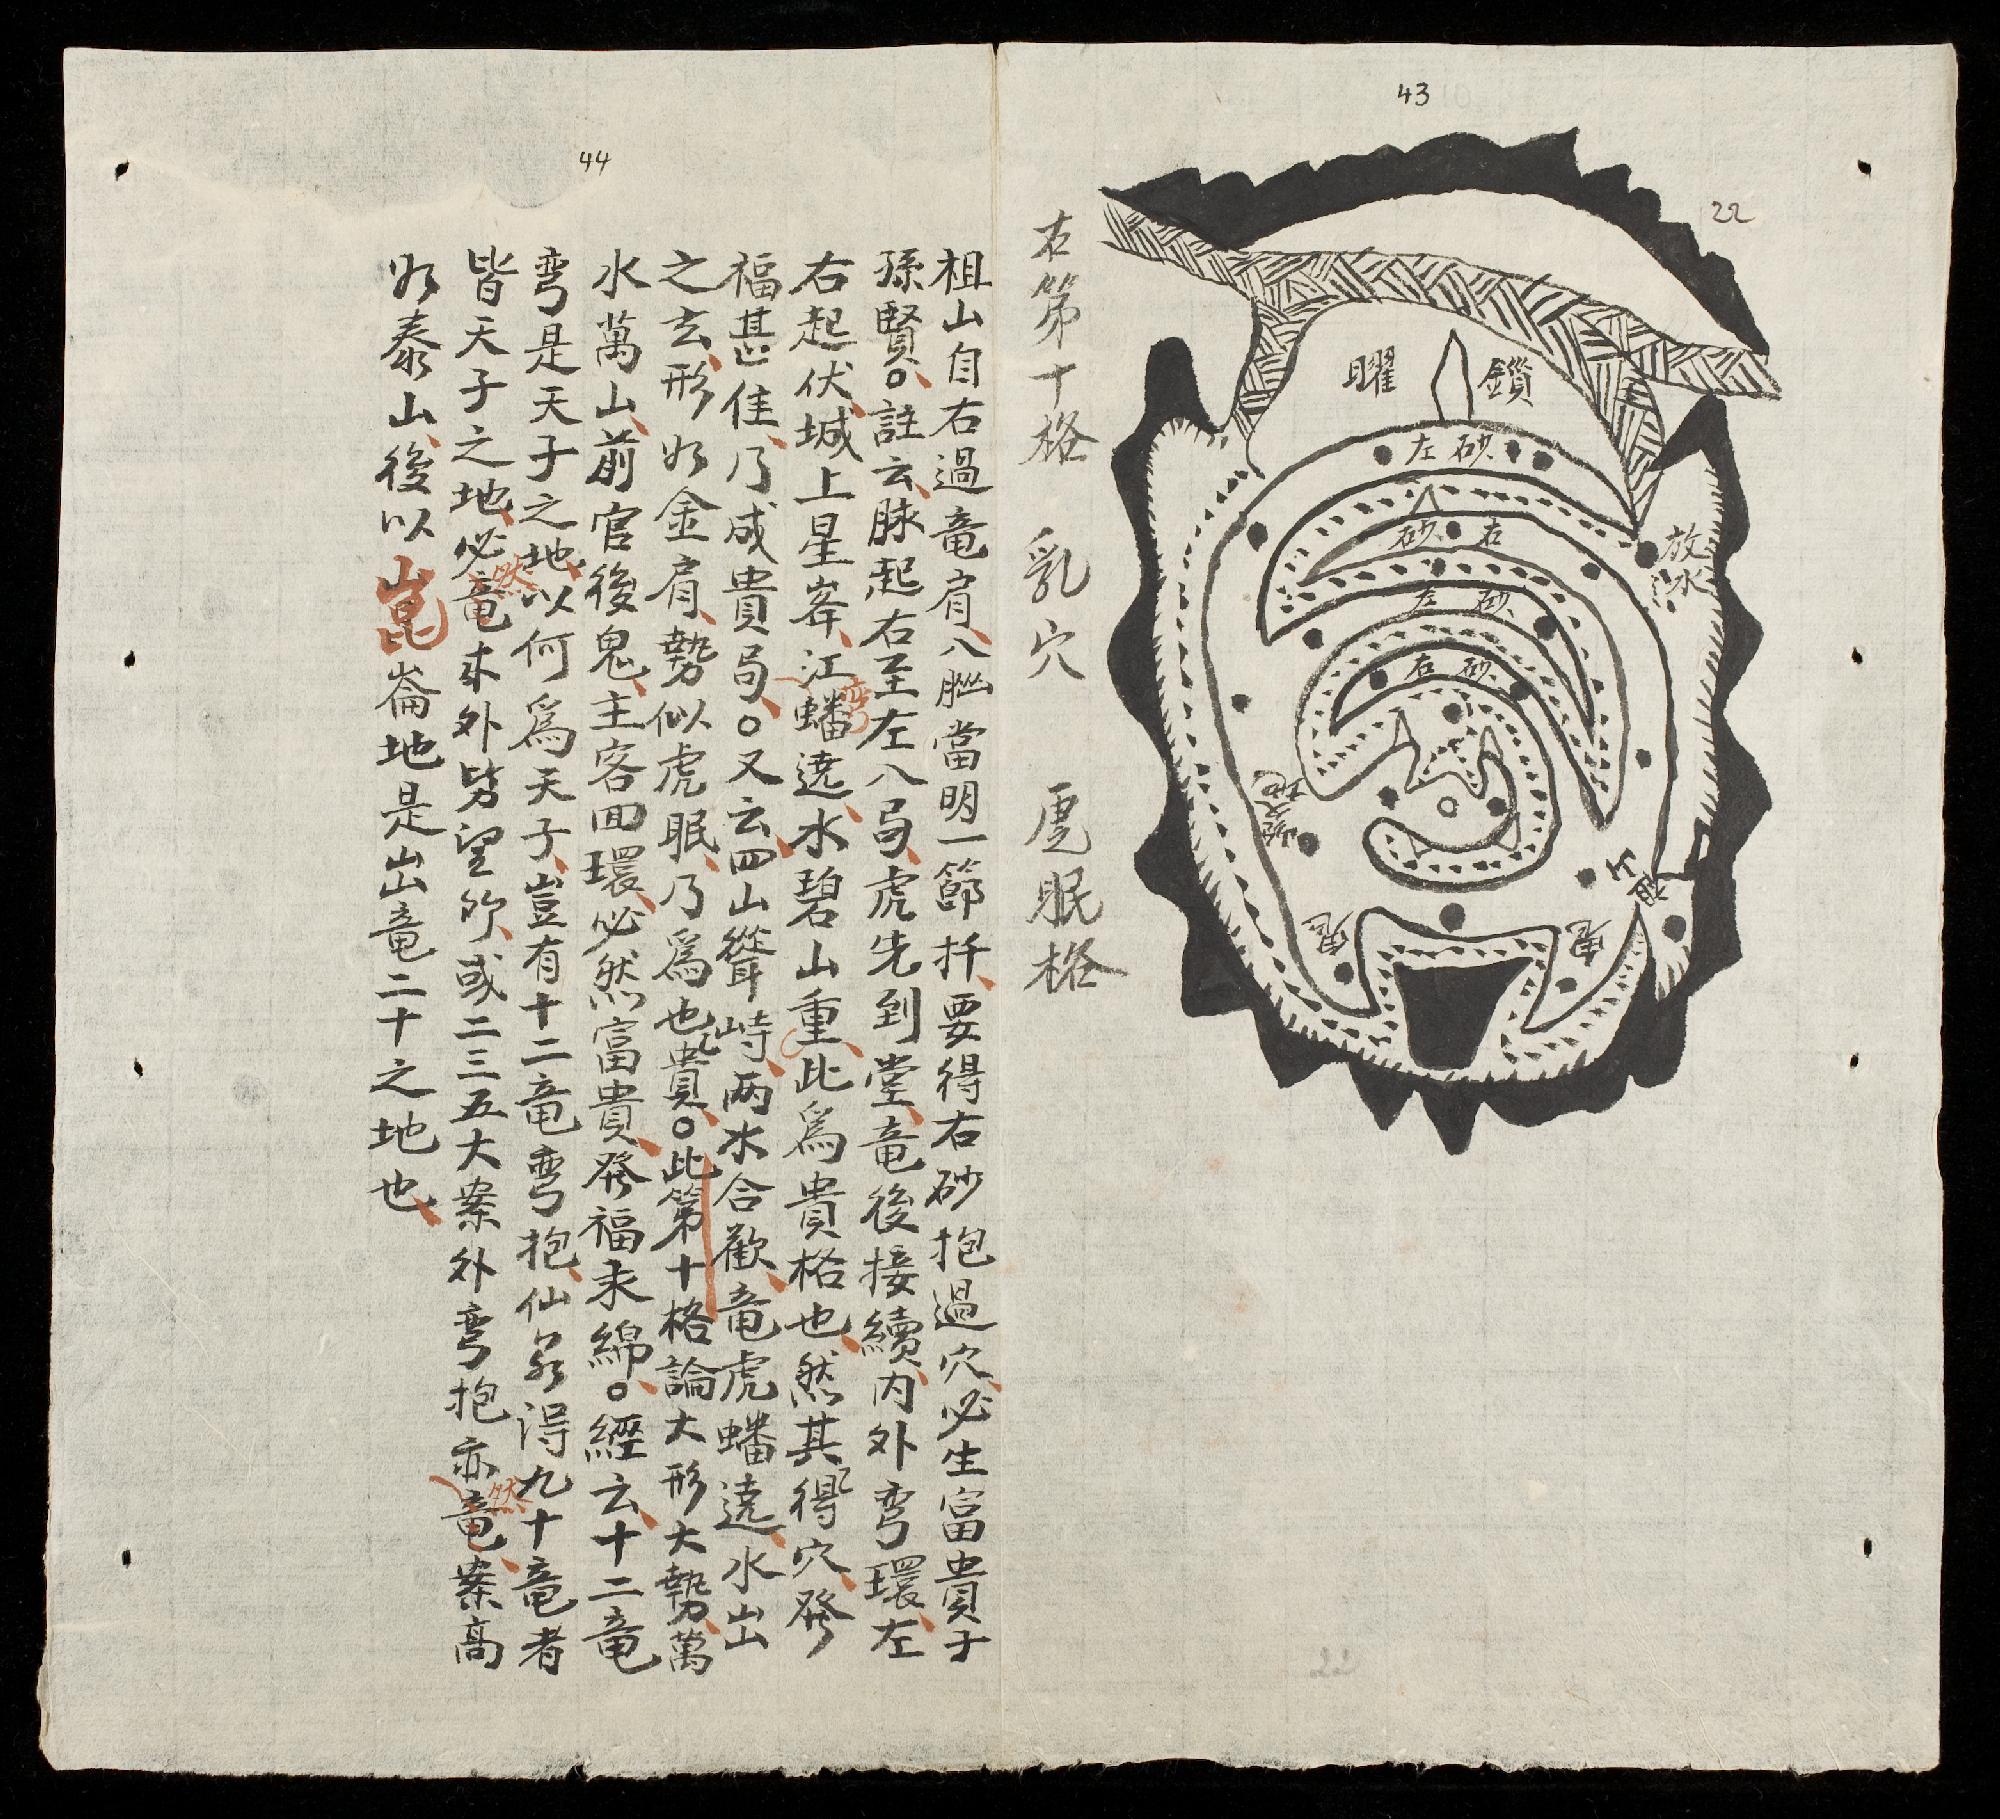 43
22
曜 鎖
左砂
砂右
左砂
右砂
放水
祖山
鬼
鬼
右第十格 乳穴 虎眠格
44
祖山自右過竜肩八𦙄當明一節扦要得右砂抱過穴必生富貴子
孫賢。註云脉起右至左八局虎先到堂竜後接續内外弯環左
右起伏城上星峯江蟠遶水碧山重此爲貴格也然其得穴發
弯
福甚佳乃成貴局。又云四山聳峙两水合歡竜虎蟠遶水山
之玄形如金肩勢似虎眠乃爲也貴。此第十格論大形大勢萬
水萬山前官後鬼主客囬環必然富貴發福耒綿。經云十二竜
弯是天子之地以何爲天子豈有十二竜弯抱仙若得九十竜者
皆天子之地必竜来外勢望於或二三五大案外弯抱亦竜案高
然
然
如泰山後以崑崙地是出竜二十之地也